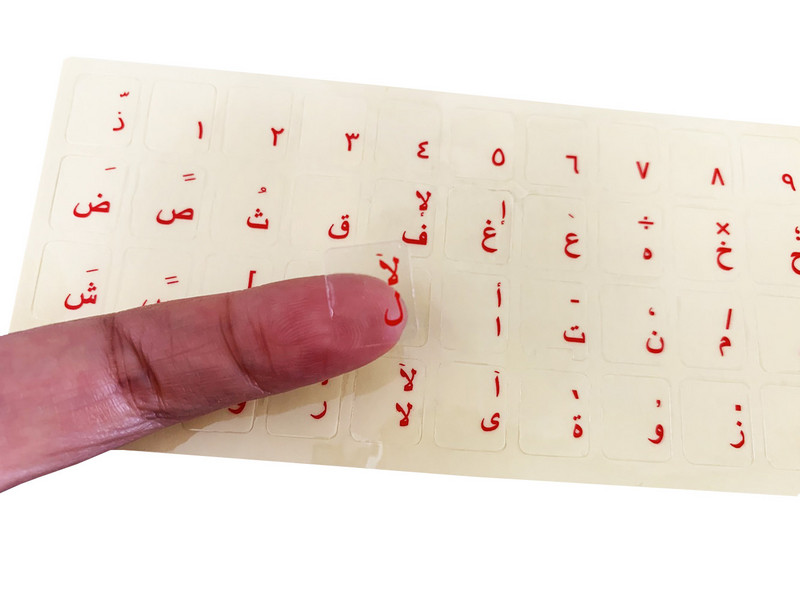 ذ ّ ١ ٢ ٣ ٤ ٥ ٦ ٧ ٨ ٩
َ ً ُ لإ إ ‘ ÷ ×
ض ص ث ق ف غ ع ه خ ح
لأ أ ـ ، /
ش ل ا ت ن م
لآ آ ' , .
ر لا ى ة و ز